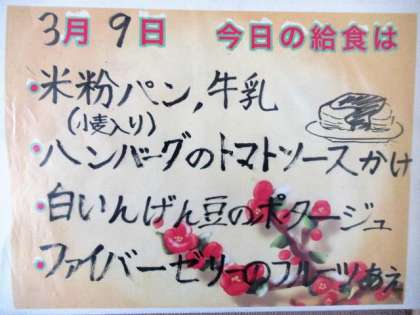 3月 9日 今日の給食は
・米粉パン,牛乳
(小麦入り)
・ハンバーグのトマトソースかけ
・白いんげん豆のポタージュ
・ファイバーゼリーのフルーツあえ